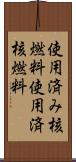 使用済み核
燃料使用済
核燃料